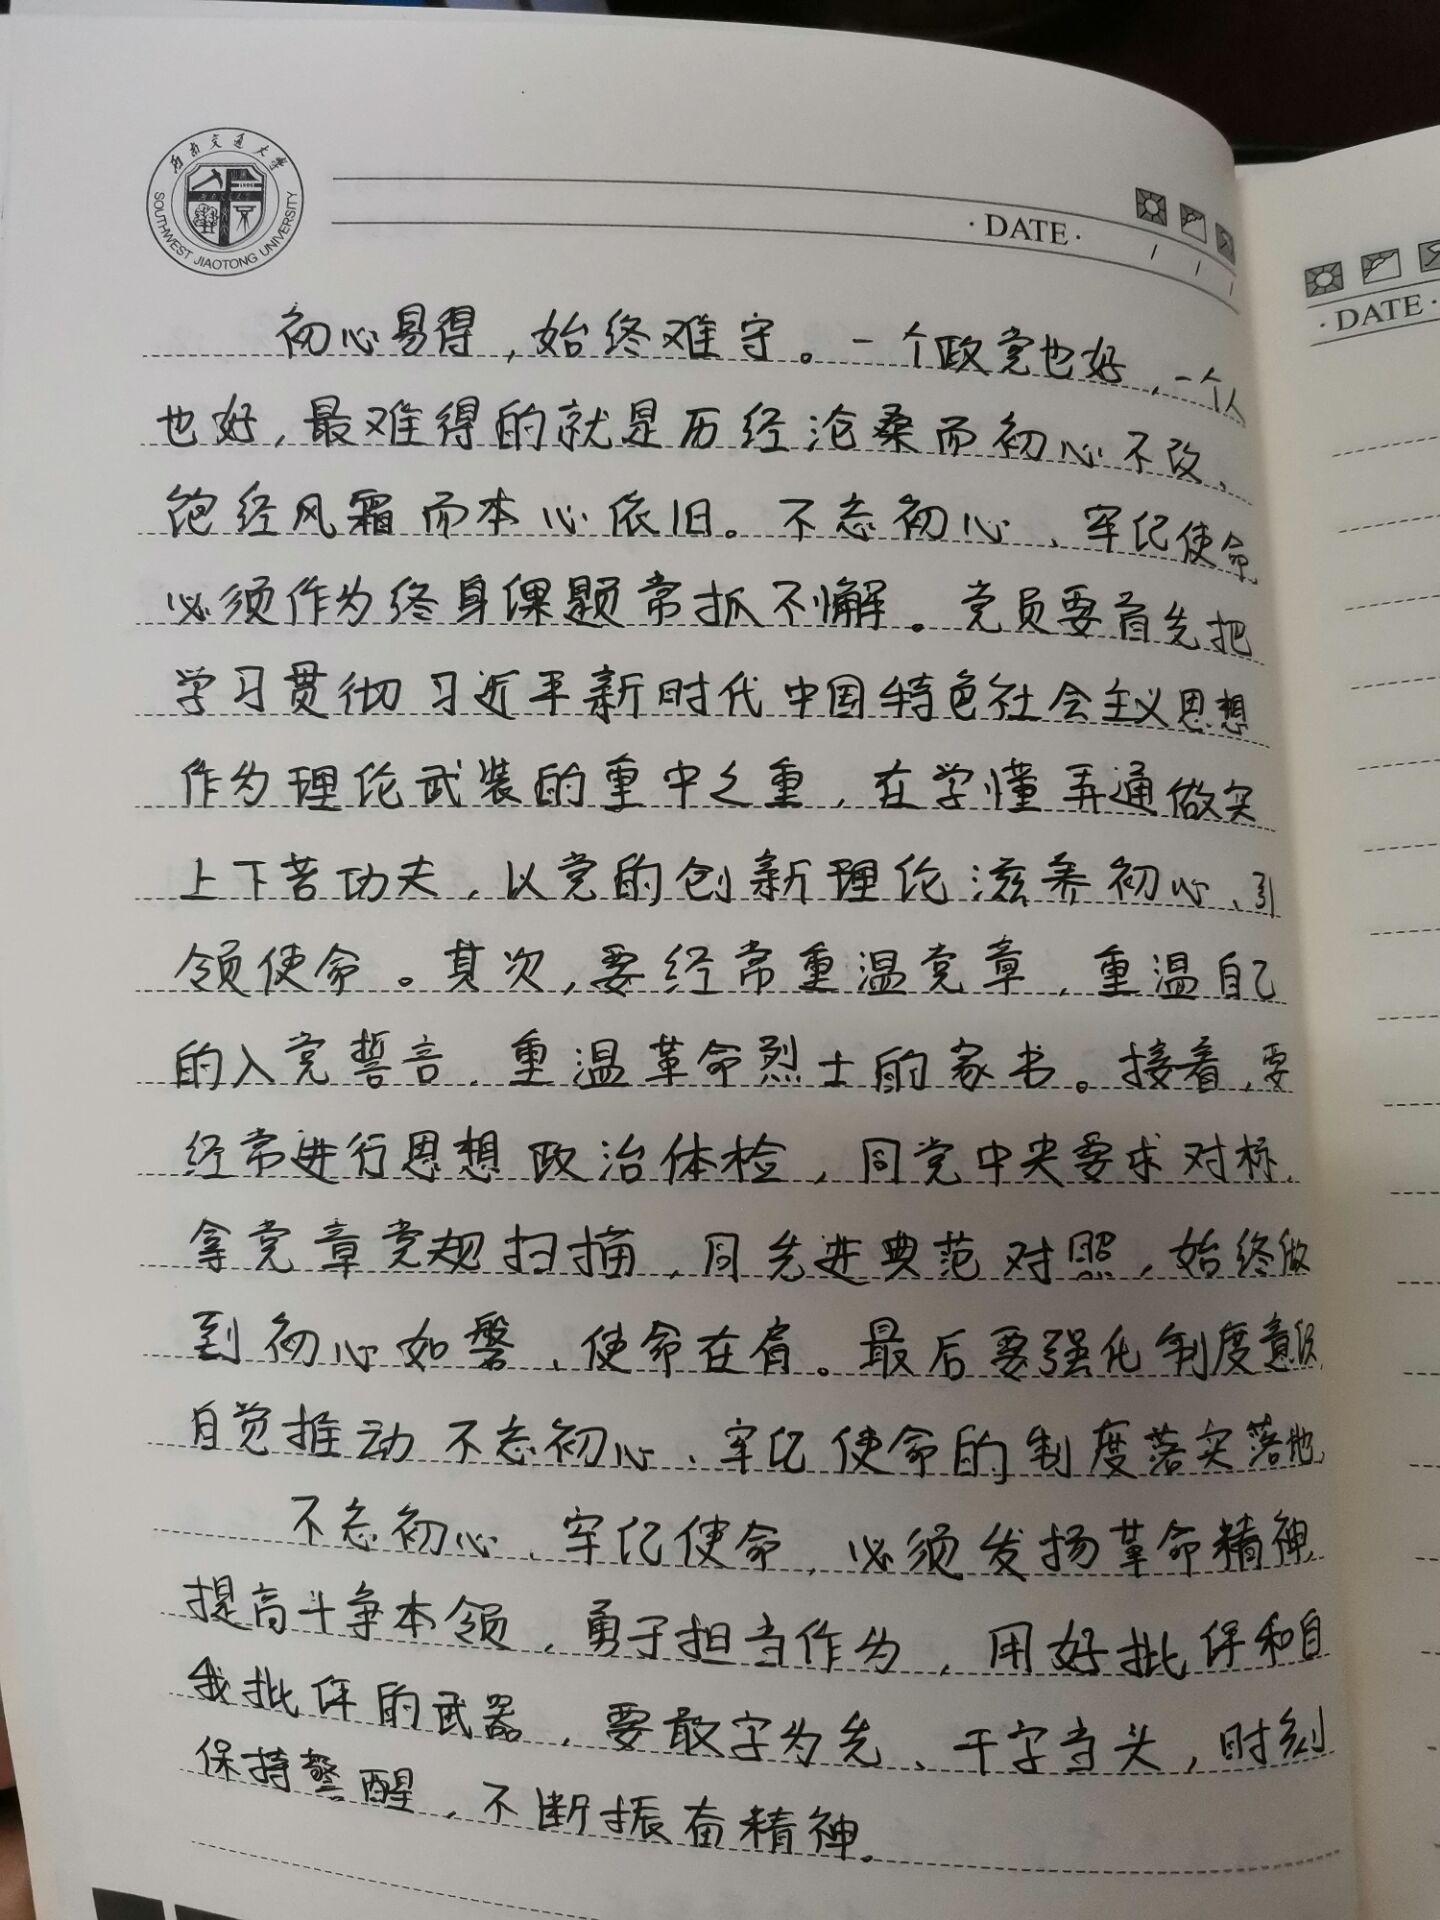 西南交通大学
SOUTHWEST JIAOTONG UNIVERSITY
1896
·DATE·
·DATE·
初心易得，始终难守。一个政党也好，一个人
也好，最难得的就是历经沧桑而初心不改、
饱经风霜而本心依旧。不忘初心、牢记使命
必须作为终身课题常抓不懈。党员要首先把
学习贯彻习近平新时代中国特色社会主义思想
作为理论武装的重中之重，在学懂弄通做实
上下苦功夫，以党的创新理论滋养初心、引
领使命。其次，要经常重温党章，重温自己
的入党誓言，重温革命烈士的家书。接着，要
经常进行思想政治体检，同党中央要求对标，
拿党章党规扫描，同先进典范对照，始终做
到初心如磐、使命在肩。最后要强化制度意识，
自觉推动不忘初心、牢记使命的制度落实落地，
不忘初心、牢记使命，必须发扬革命精神，
提高斗争本领，勇于担当作为，用好批评和自
我批评的武器，要敢字为先、干字当头，时刻
保持警醒，不断振奋精神。